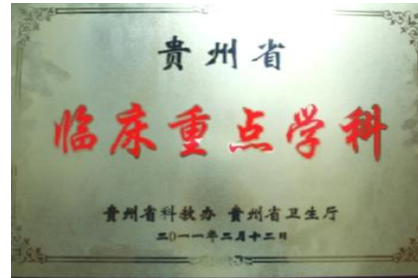 贵州省
临床重点学科
贵州省科教办 贵州省卫生厅
二0一一年二月十二日